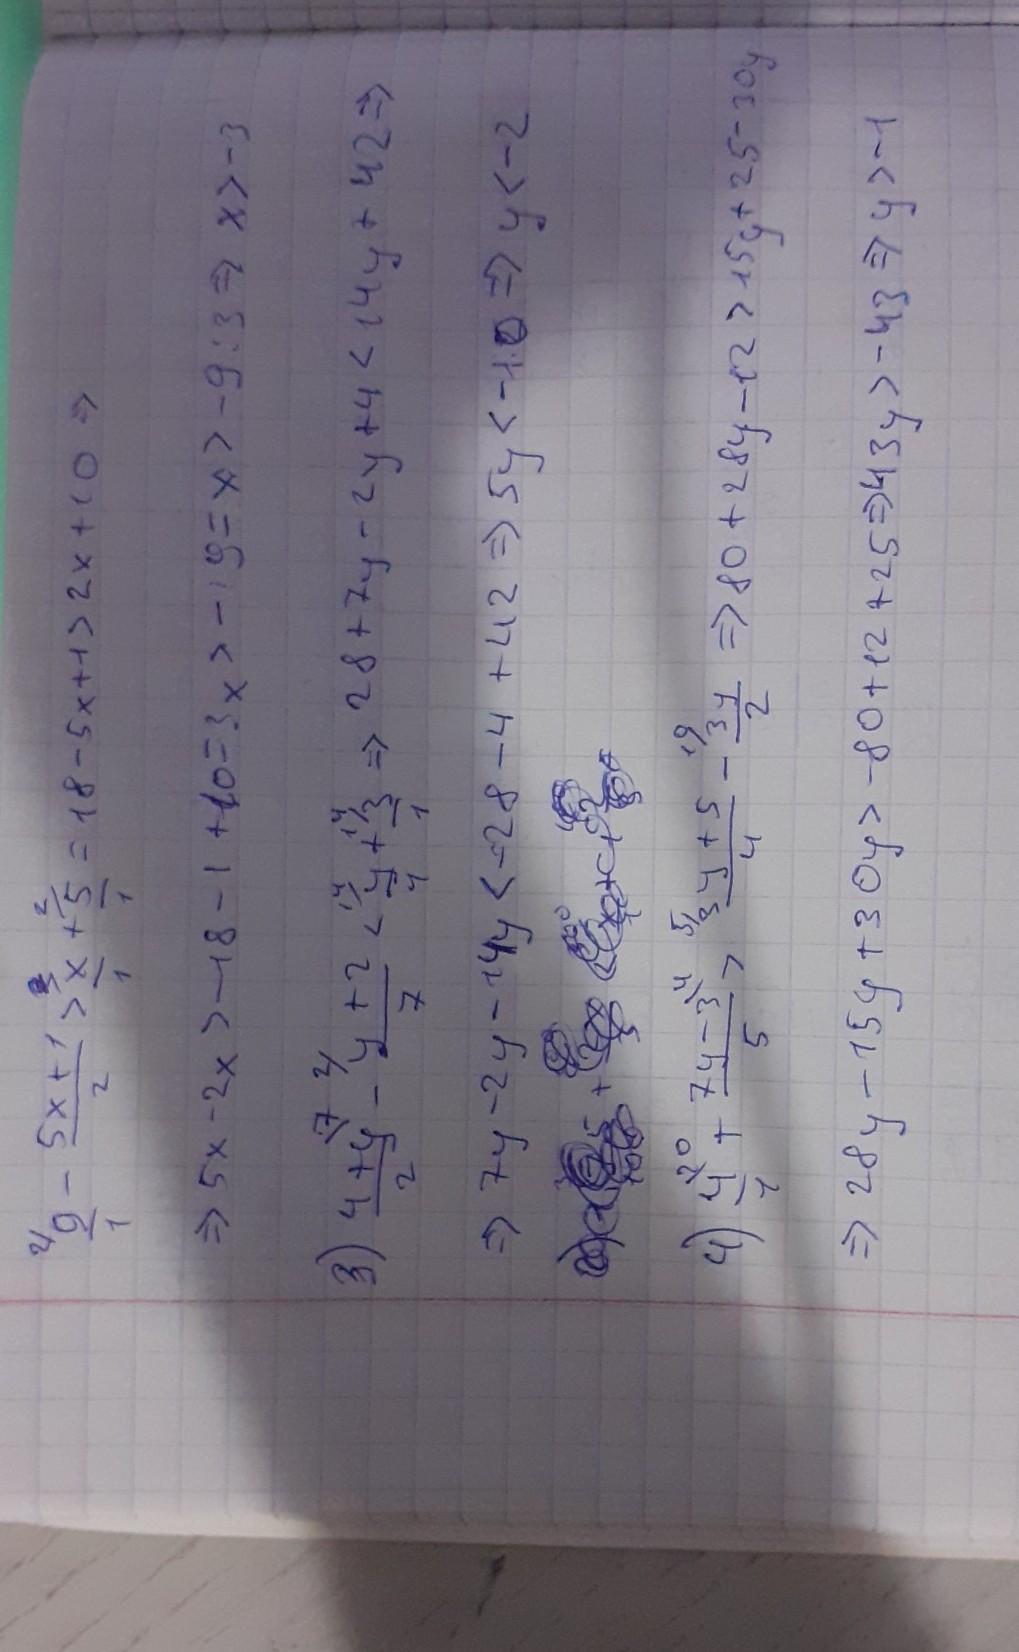 ²⁄ 9/1 - (5x+1)/2 > x/1 + ²⁄ 5/1 = 18-5x+1>2x+10 ⇒
⇒ 5x-2x>-18-1+10=3x>-19=x>-9:3⇒x>-3
3) (4+y)/2 ⁷⁄ - ²⁄ (y+2)/7 < ¹⁴⁄ y/1 + ¹⁴⁄ 3/1 ⇒ 28+7y-2y+4<14y+42⇒
⇒ 7y-2y-14y<-28-4+42⇒5y<-10⇒y<-2
4) 4/1 ²⁰⁄ + (7y-3)/5 ⁴⁄ > ⁵⁄ (3y+5)/4 - ¹⁰⁄ 3y/2 ⇒80+28y-12>15y+25-30y
⇒ 28y-15y+30y>-80+12+25⇒43y>-43⇒y>-1